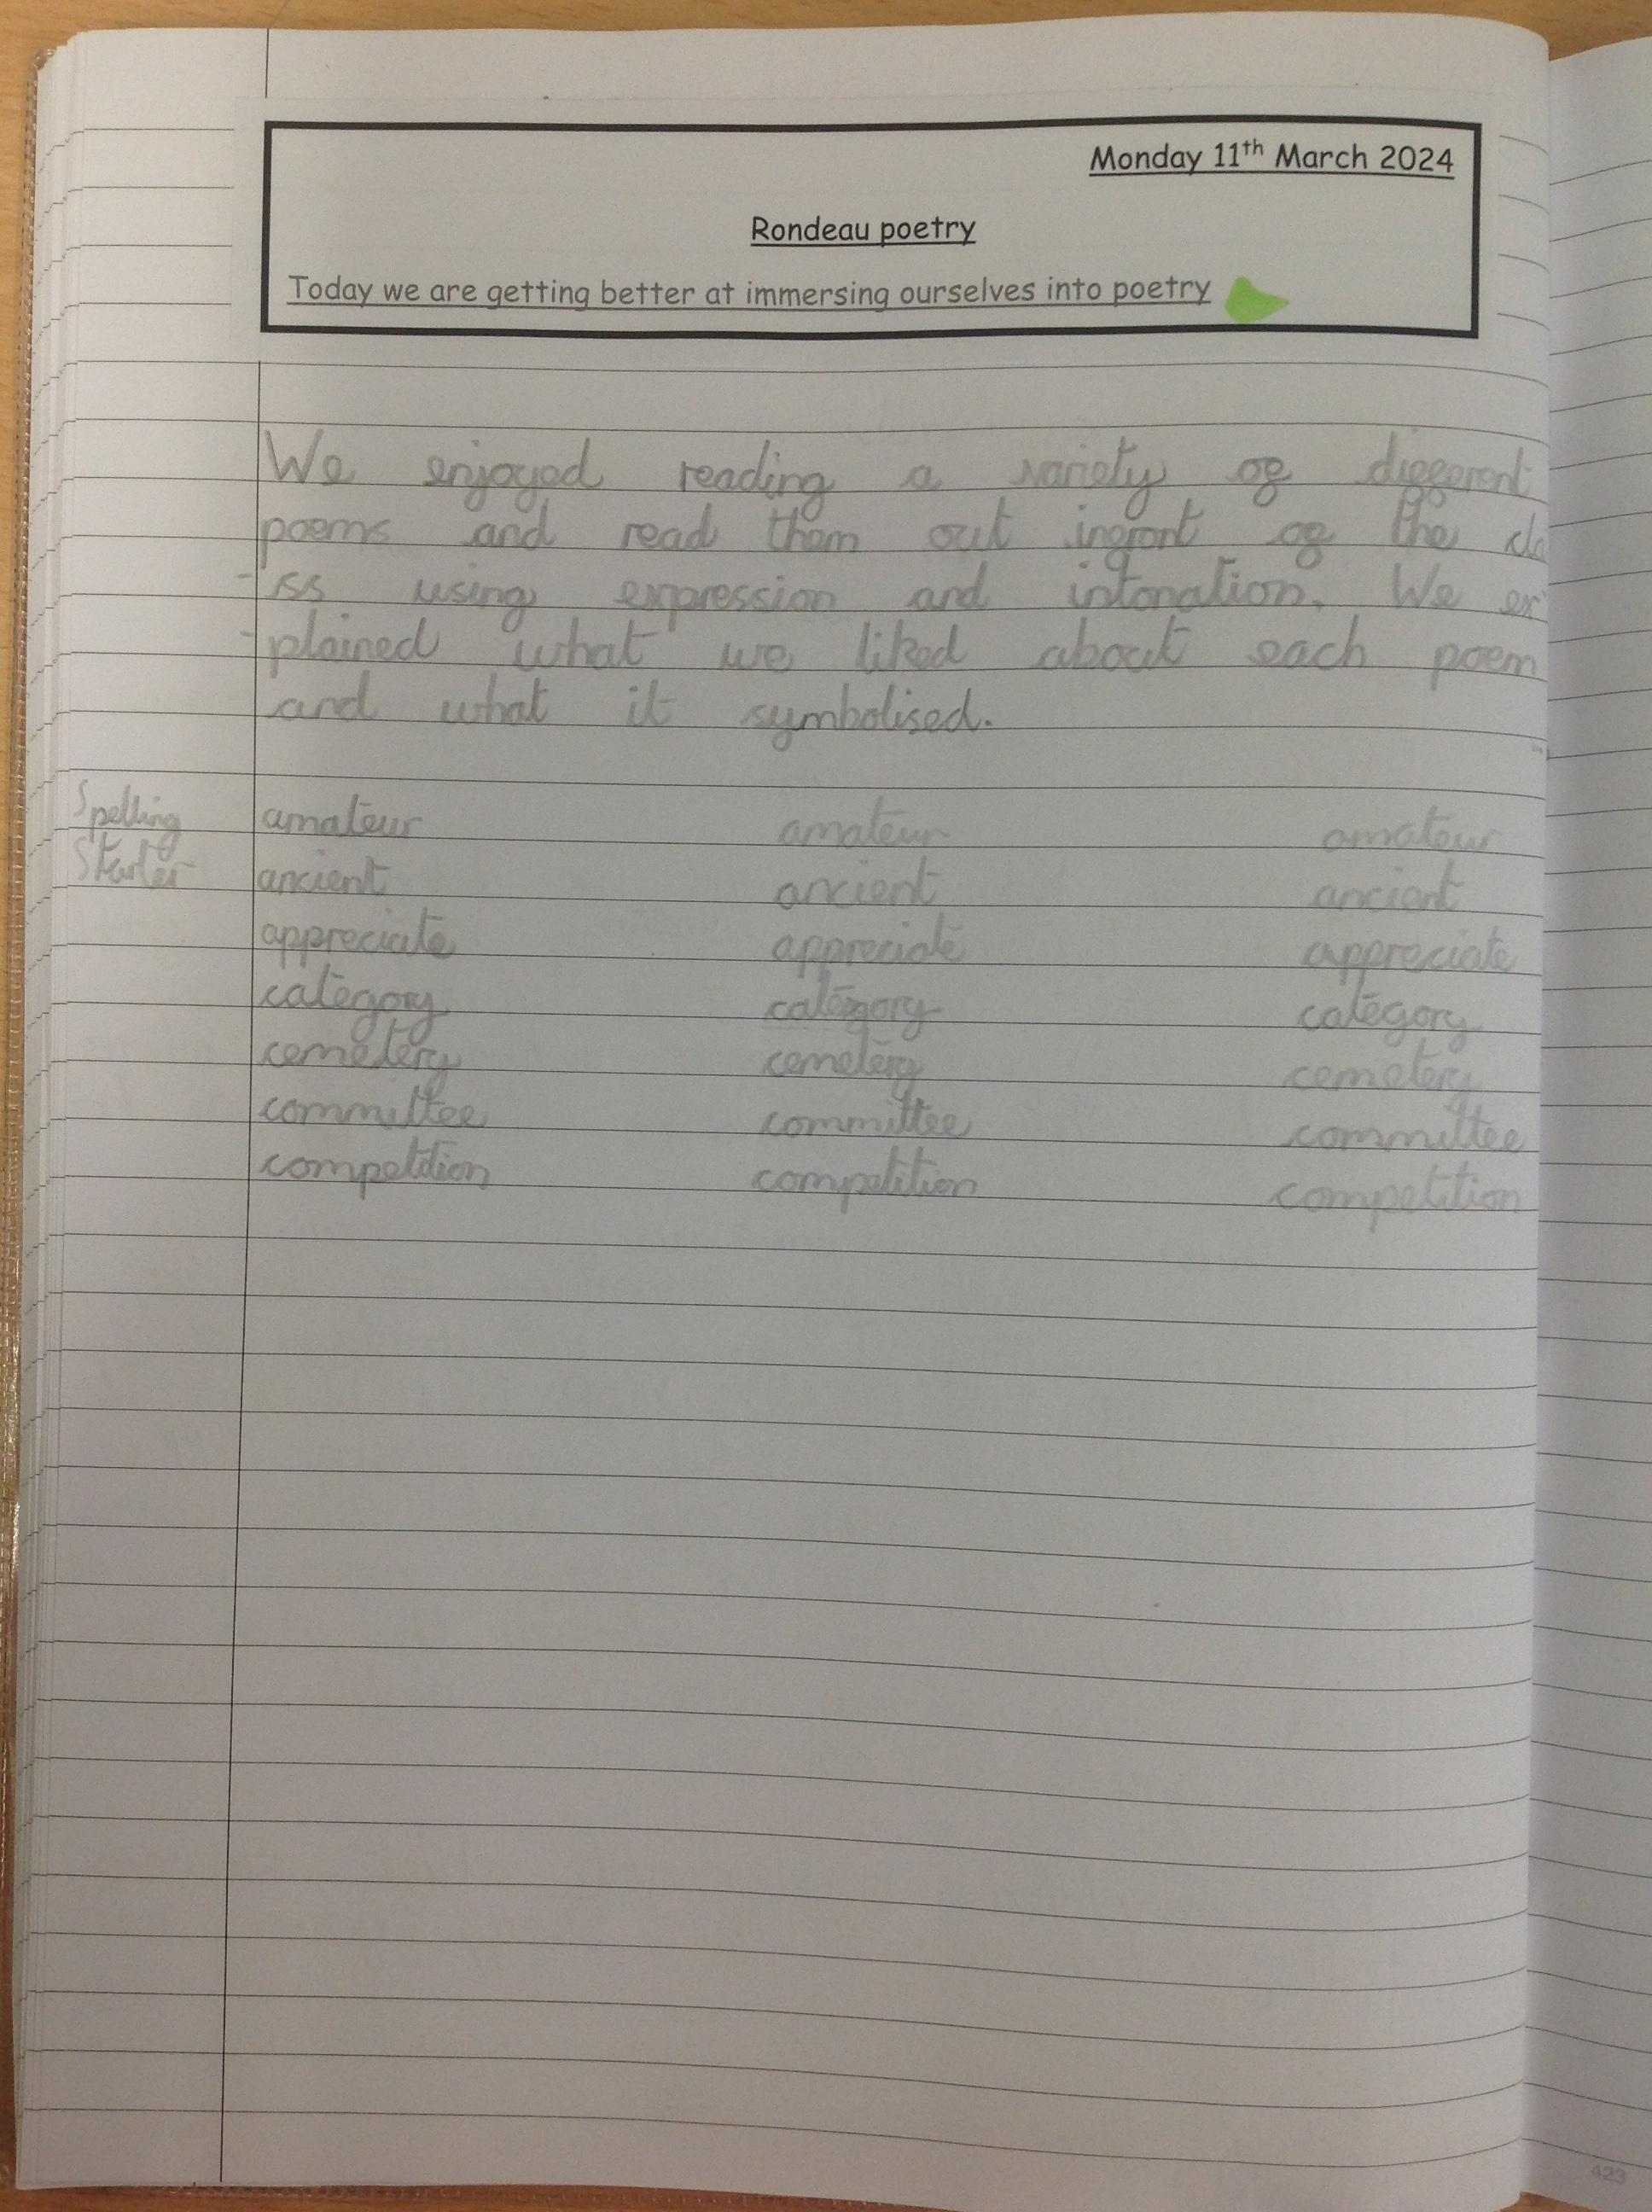 Monday 11th March 2024
Rondeau poetry
Today we are getting better at immersing ourselves into poetry
We enjoyed reading a variety of different
poems and read them out infront of the cla
-ss using expression and intonation. We ex
-plained what we liked about each poem
and what it symbolised.
Spelling
Starter
amateur amateur amateur
ancient ancient ancient
appreciate appreciate appreciate
category category category
cemetery cemetery cemetery
committee committee committee
competition competition competition
423